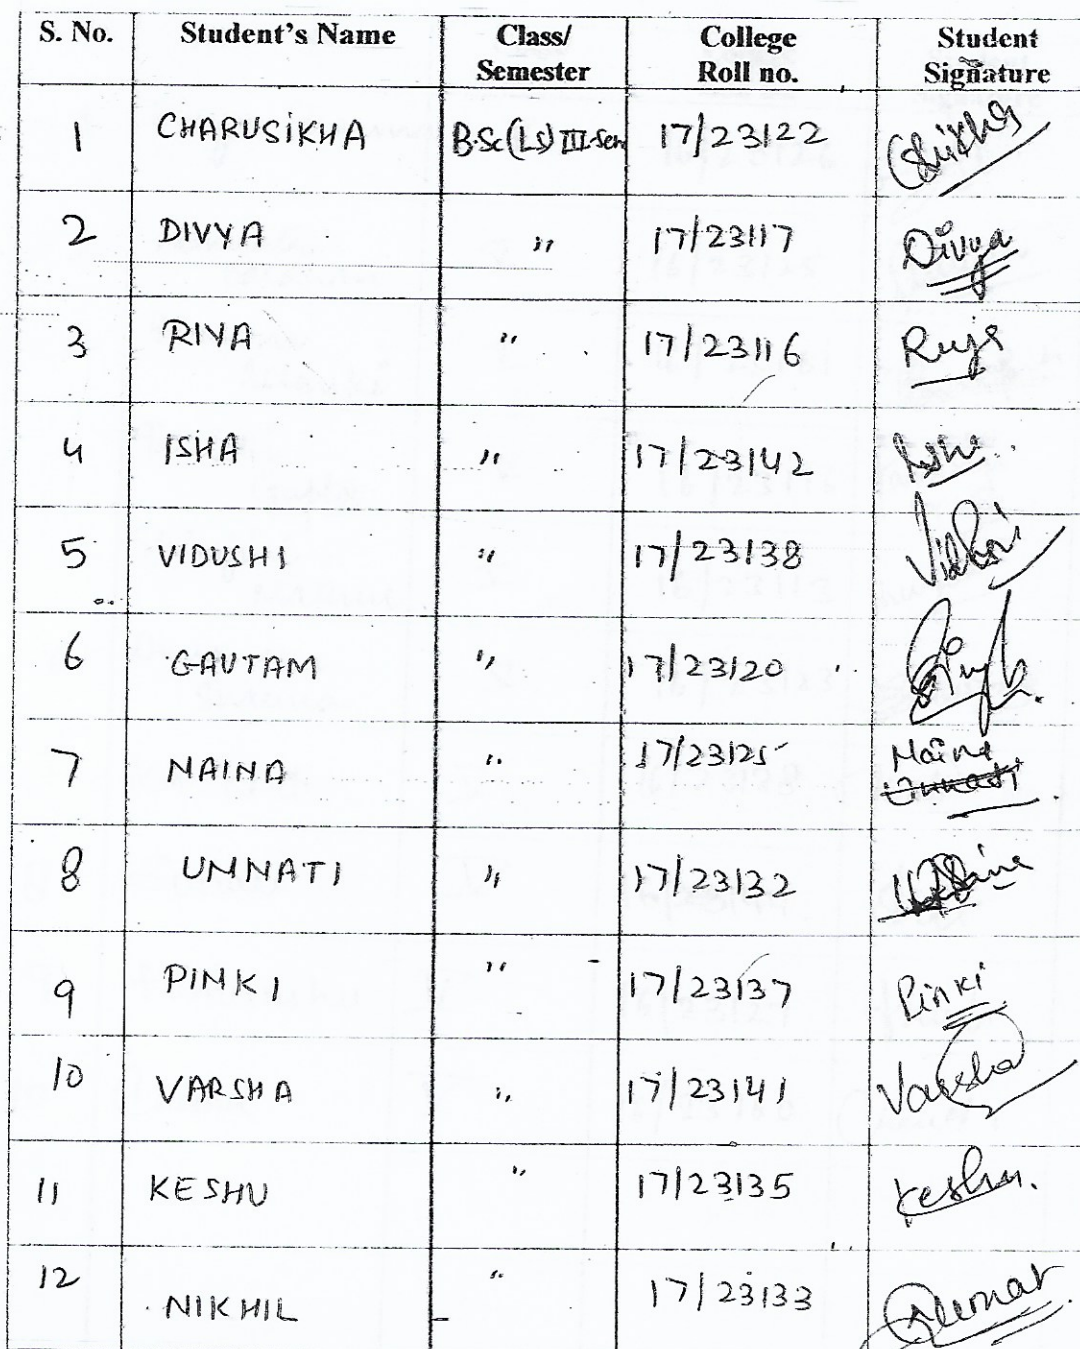 S. No. Student's Name Class/ Semester College Roll no. Student Signature
1 CHARUSIKHA B.Sc(LS) III-Sem 17/23122
2 DIVYA " 17/23117 Divya
3 RIYA " 17/23116
4 ISHA " 17/23142 Isha
5 VIDUSHI " 17/23138
6 GAUTAM " 17/23120
7 NAINA " 17/23125 Naina
Unnati
8 UNNATI " 17/23132
9 PINKI " 17/23137 Pinki
10 VARSHA " 17/23141 Varsha
11 KESHU " 17/23135 Keshu.
12 NIKHIL " 17/23133